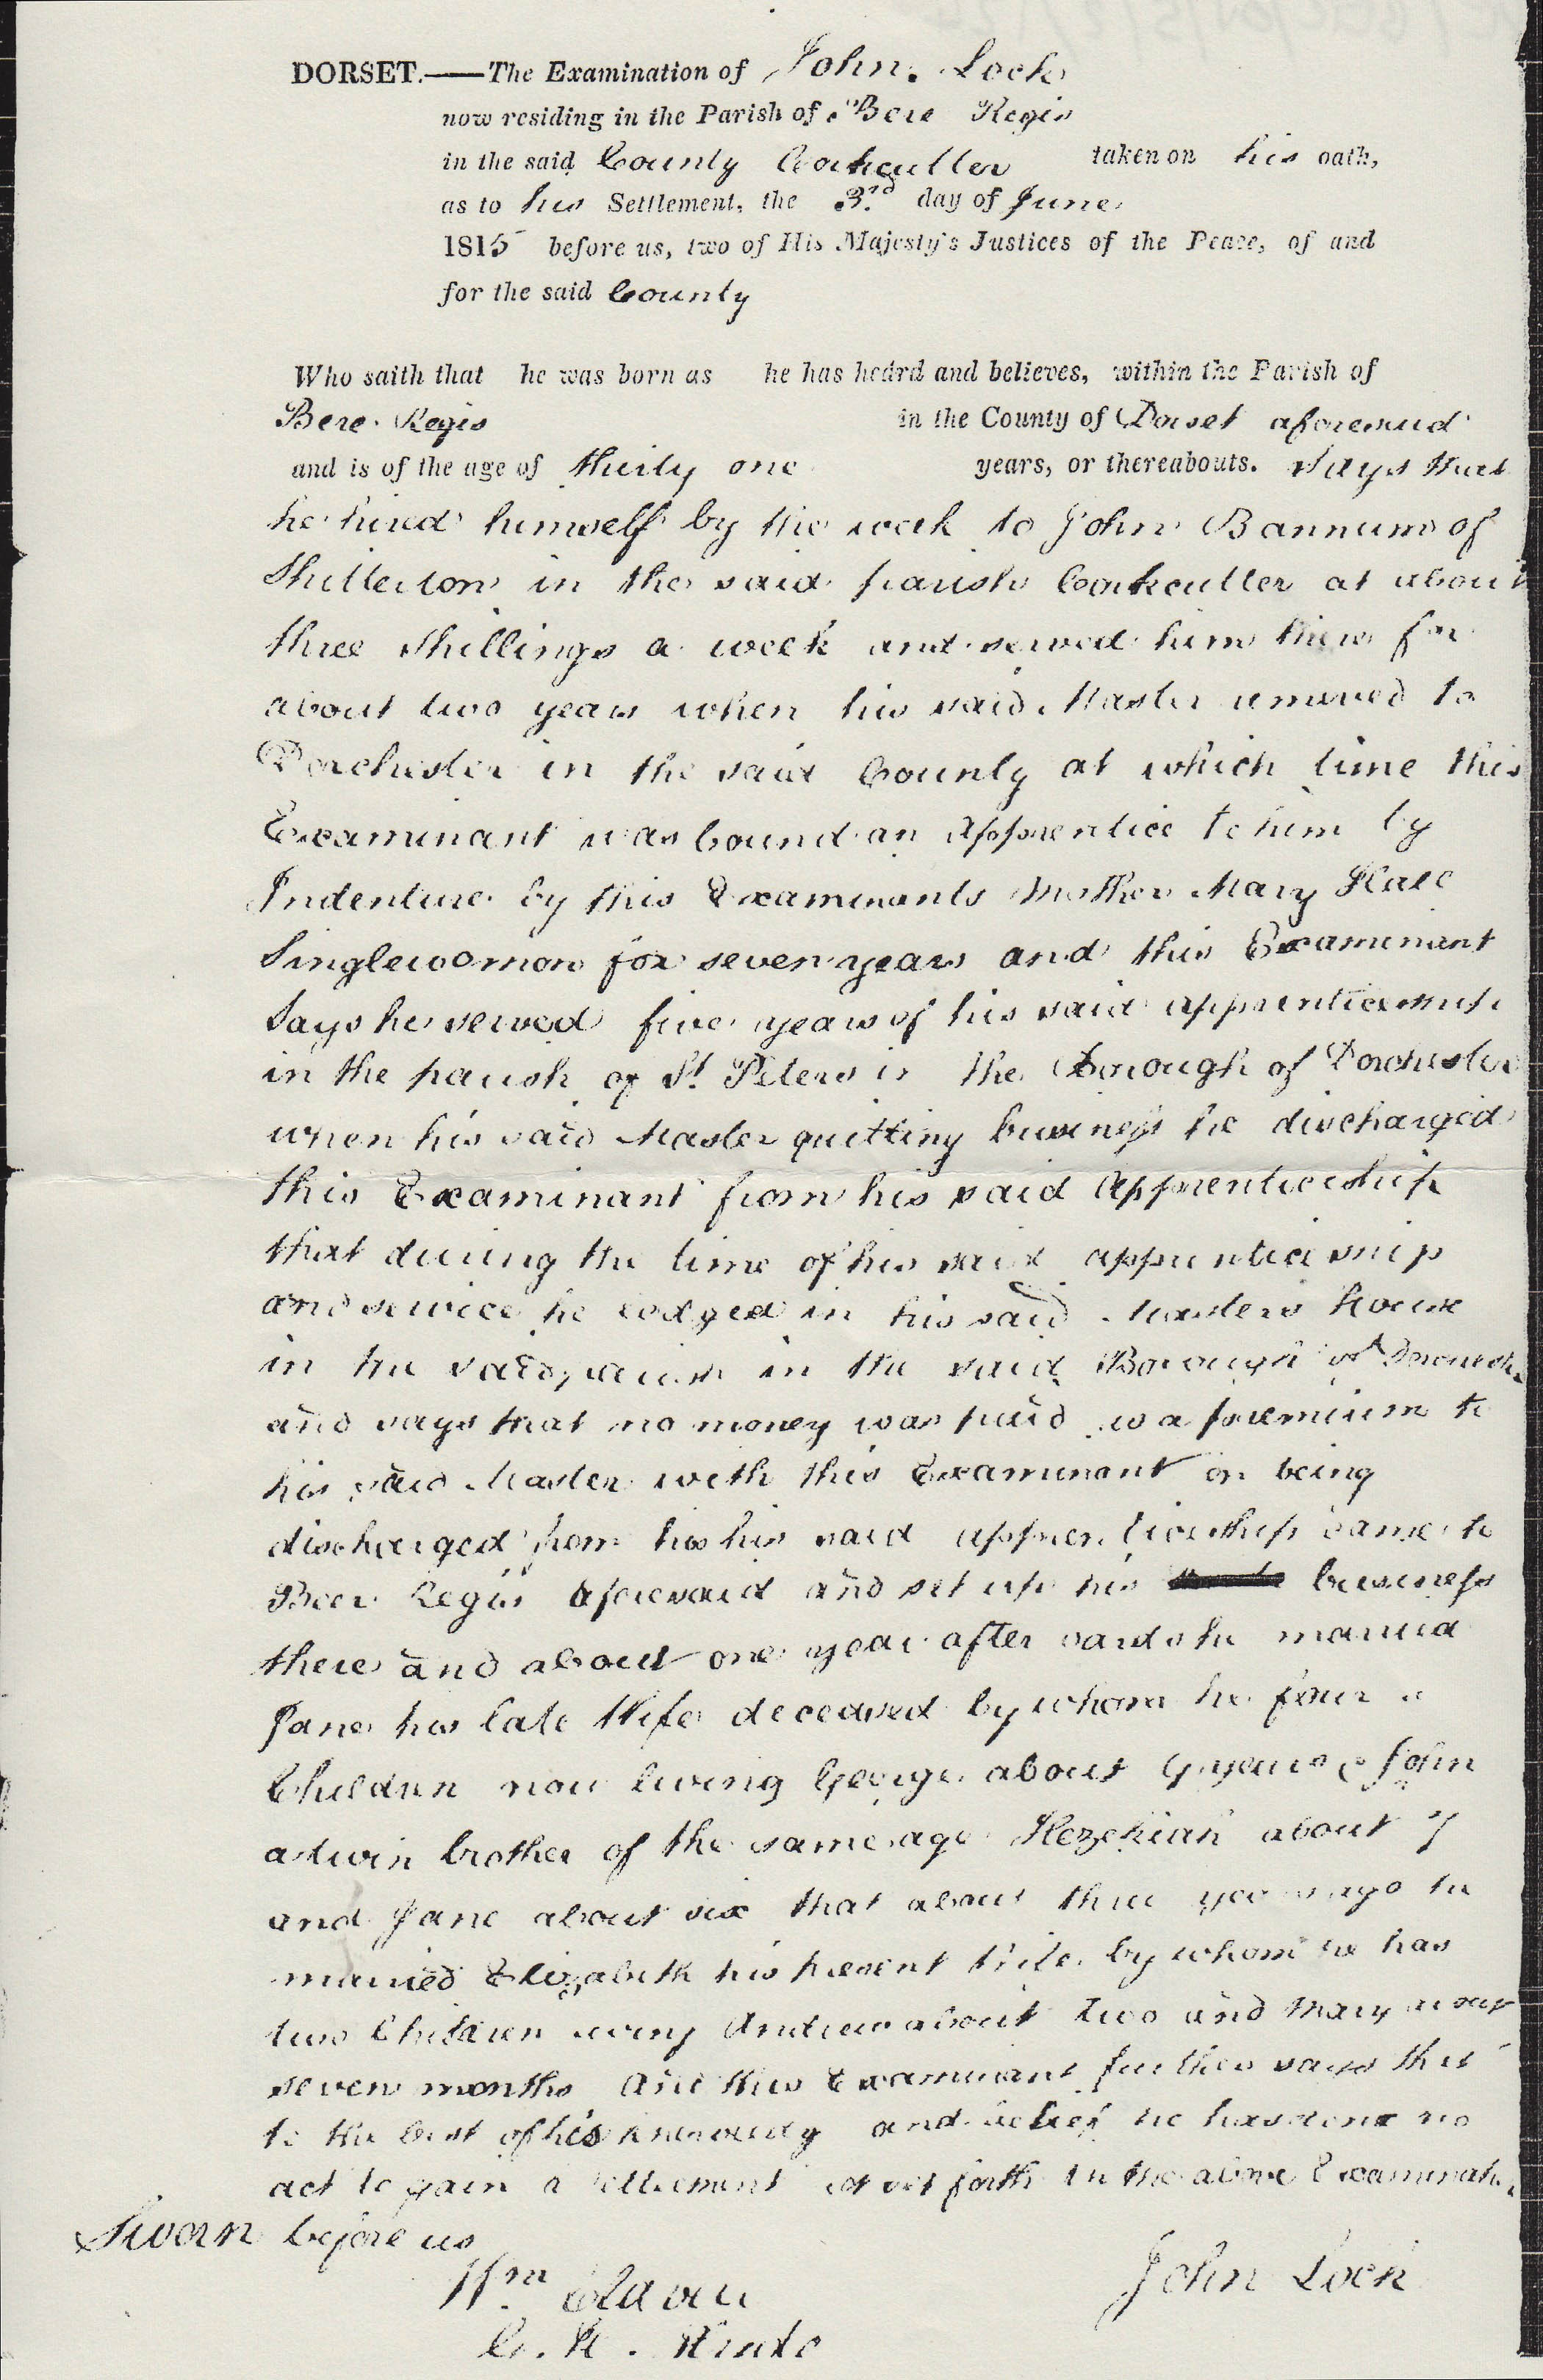 DORSET.——The Examination of John Lock
now residing in the Parish of Bere Regis
in the said County Corkcutter taken on his oath,
as to his Settlement, the 3rd day of June
1815 before us, two of His Majesty's Justices of the Peace, of and
for the said County
Who saith that he was born as he has heard and believes, within the Parish of
Bere Regis in the County of Dorset aforesaid
and is of the age of thirty one years, or thereabouts. Says that
he hired himself by the week to John Bannum of
Shitterton in the said parish Corkcutter at about
three shillings a week and served him there for
about two years when his said Master removed to
Dorchester in the said County at which time this
Examinant was bound an Apprentice to him by
Indenture by this Examinants Mother Mary
Singlewoman for seven years and this Examinant
Says he served five years of his said apprenticeship
in the parish of St. Peters in the Borough of Dorchester
when his said Master quitting business he discharged
this Examinant from his said Apprenticeship
that during the time of his said apprenticeship
and service he lodged in his said Masters House
in the said parish in the said Borough of Dorchester
and says that no money was paid as a premium to
his said Master with this Examinant on being
discharged from his his said apprenticeship came to
Beer Regis aforesaid and set up his business
there and about one year after wards he married
Jane his late Wife deceased by whom he four
Children now living George about 9 years & John
a twin brother of the same age Hezekiah about 7
and Jane about six that about three years ago he
married Elizabeth his present Wife by whom he has
two Children living Andrew about two and Mary about
seven months And this Examinant further says that
to the best of his knowledg and belief he has done no
act to gain a settlement set forth in the above Examination
Sworn before us
Wm John Lock
C. H.